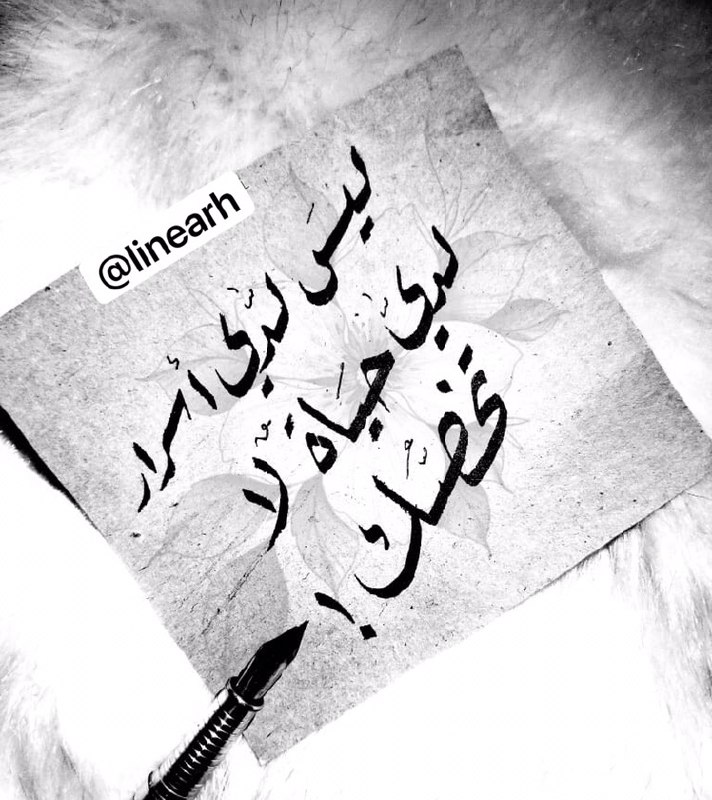 @linearh
ليس لديّ أسرار
لديّ حياة لا
تخصّك !